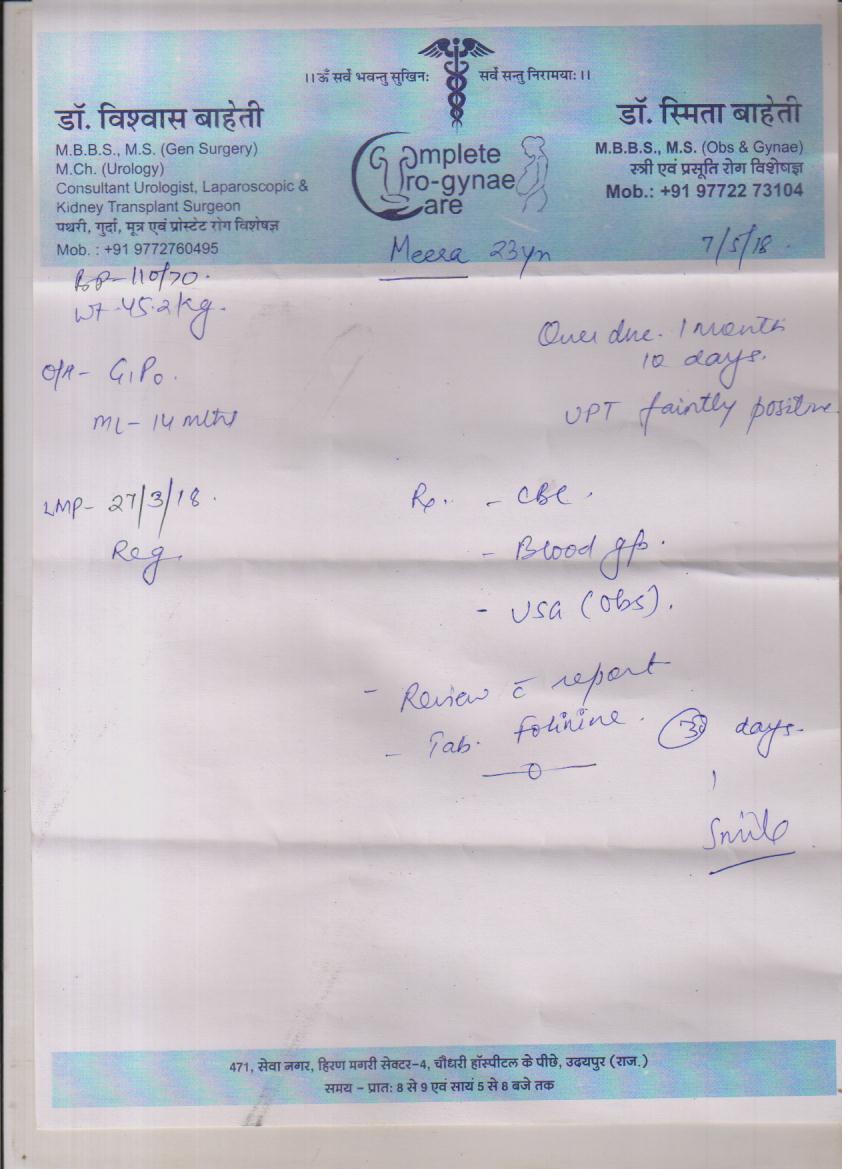 ।। ॐ सर्वे भवन्तु सुखिनः सर्वे सन्तु निरामयाः ।।
डॉ. विश्वास बाहेती
M.B.B.S., M.S. (Gen Surgery)
M.Ch. (Urology)
Consultant Urologist, Laparoscopic &
Kidney Transplant Surgeon
पथरी, गुर्दा, मूत्र एवं प्रोस्टेट रोग विशेषज्ञ
Mob. : +91 9772760495
Complete
Uro-gynae
Care
डॉ. स्मिता बाहेती
M.B.B.S., M.S. (Obs & Gynae)
स्त्री एवं प्रसूति रोग विशेषज्ञ
Mob.: +91 97722 73104
Meera 23yr
7/5/18.
BP-110/70.
Wt-45.2kg.
Over due. 1 month
10 days.
O/H- G1P0.
UPT faintly positive
ML- 14 mths
LMP- 27/3/18.
Reg
Rx. - CBC.
- Blood gp.
- USG (Obs).
- Review c̄ report
- Tab. 30 days.
471, सेवा नगर, हिरण मगरी सेक्टर-4, चौधरी हॉस्पीटल के पीछे, उदयपुर (राज.)
समय - प्रातः 8 से 9 एवं सायं 5 से 8 बजे तक